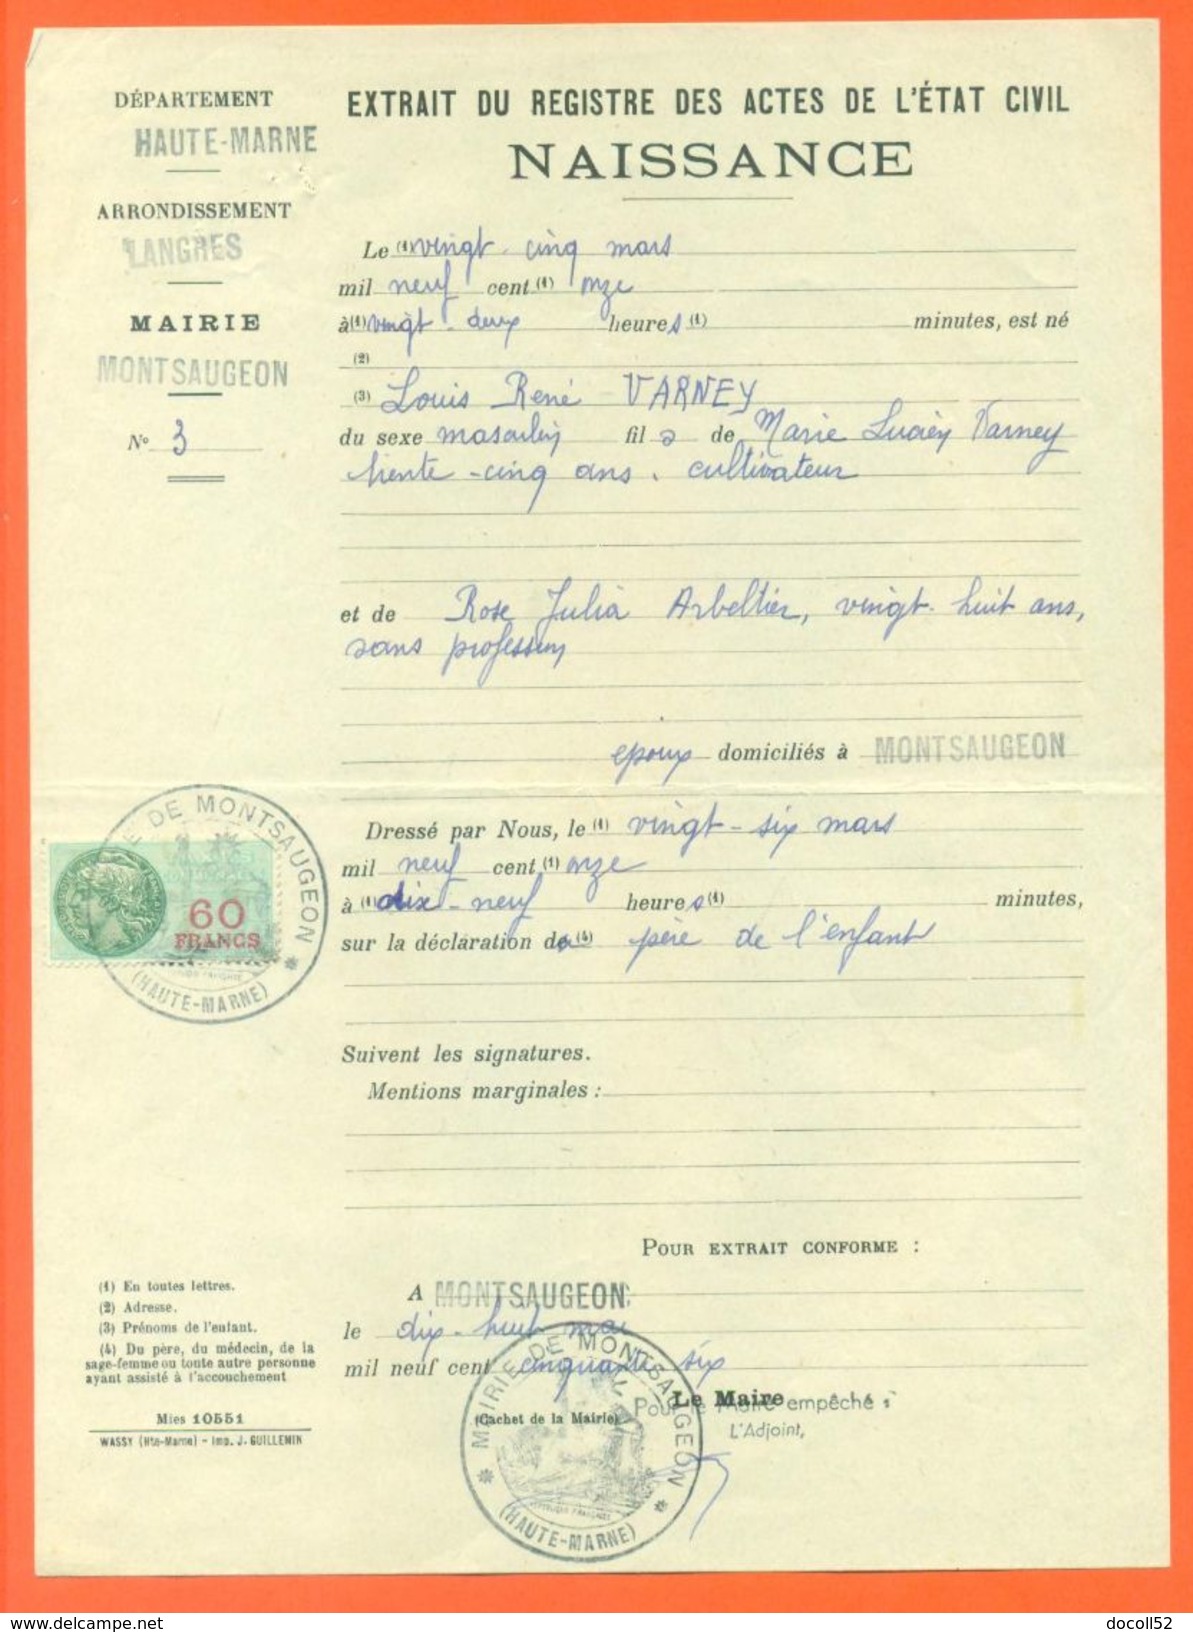 DÉPARTEMENT
HAUTE-MARNE
ARRONDISSEMENT
LANGRES
MAIRIE
MONTSAUGEON
N° 3
EXTRAIT DU REGISTRE DES ACTES DE L'ÉTAT CIVIL
NAISSANCE
Le (1) vingt-cinq mars
mil neuf cent (1) onze
à (1) vingt-deux heures (1) minutes, est né
(2)
(3) Louis René VARNEY
du sexe masculin fils de Marie Lucien Varney
trente-cinq ans, cultivateur
et de Rose Julia Arbeltier, vingt-huit ans,
sans profession
époux domiciliés à MONTSAUGEON
Dressé par Nous, le (1) vingt-six mars
mil neuf cent (1) onze
à (1) dix-neuf heures (1) minutes,
sur la déclaration du (4) père de l'enfant
Suivent les signatures.
Mentions marginales :
MAIRIE DE MONTSAUGEON
(HAUTE-MARNE)
60
FRANCS
POUR EXTRAIT CONFORME :
A MONTSAUGEON
le dix-huit mai
mil neuf cent cinquante six
Le Maire
Pour le Maire empêché :
L'Adjoint,
(Cachet de la Mairie)
MAIRIE DE MONTSAUGEON
(HAUTE-MARNE)
(1) En toutes lettres.
(2) Adresse.
(3) Prénoms de l'enfant.
(4) Du père, du médecin, de la
sage-femme ou toute autre personne
ayant assisté à l'accouchement
Mies 10551
WASSY (Hte-Marne) - Imp. J. GUILLEMIN
www.delcampe.net
docoll52